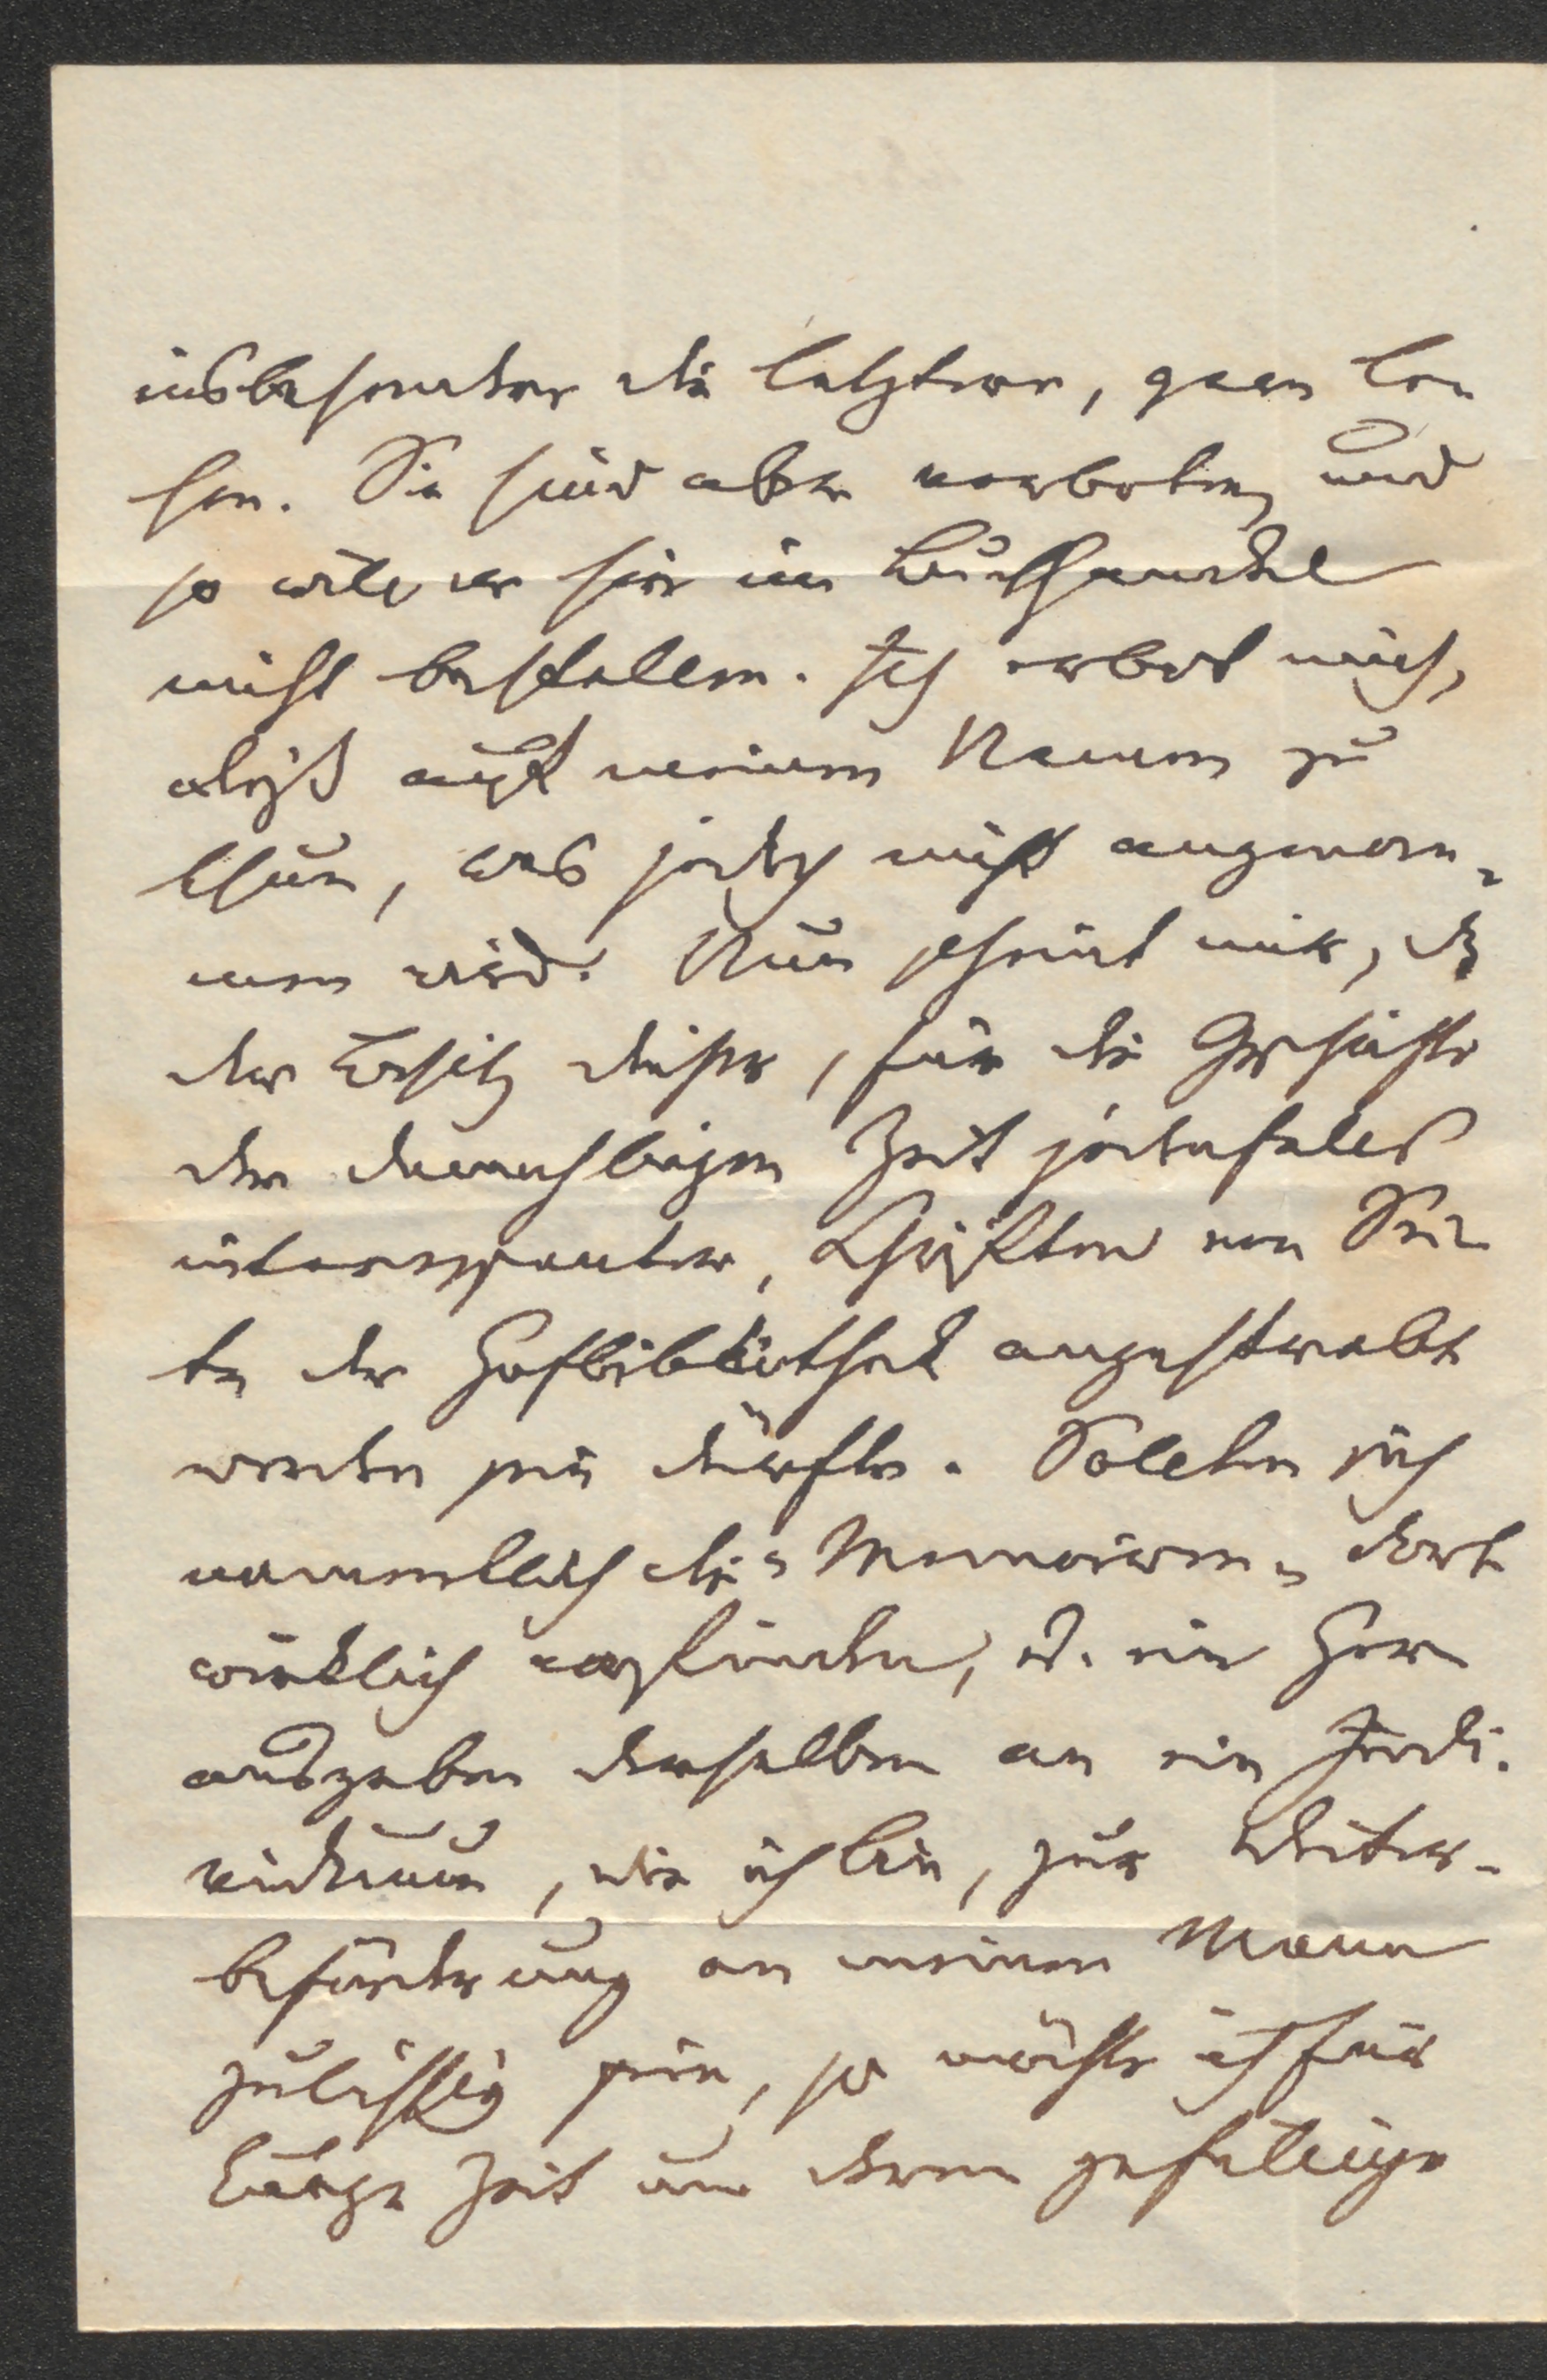 insbesondere die letztere, gern le-
sen. Sie sind aber verboten, und
so will er sie im Buchhandel
nicht bestellen. Ich erbot mich,
dieß auf meinen Namen zu
thun, was jedoch nicht angenom-
men wird. Nun scheint mir, dß
der Besitz dieser, für die Geschichte
der damaligen Zeit jedenfalls
interessanter, Schriften von Sei-
te der Hofbibliothek angestrebt
worden sein dürfte. Sollten sich
namentlich die "Memoiren" dort
wirklich vorfinden, u. ein Her-
ausgeben derselben an ein Indi-
viduum, wie ich bin, zur Weiter-
beförderung an meinen Mann
zulässig sein, so möchte ich für
kurze Zeit um deren gefällige